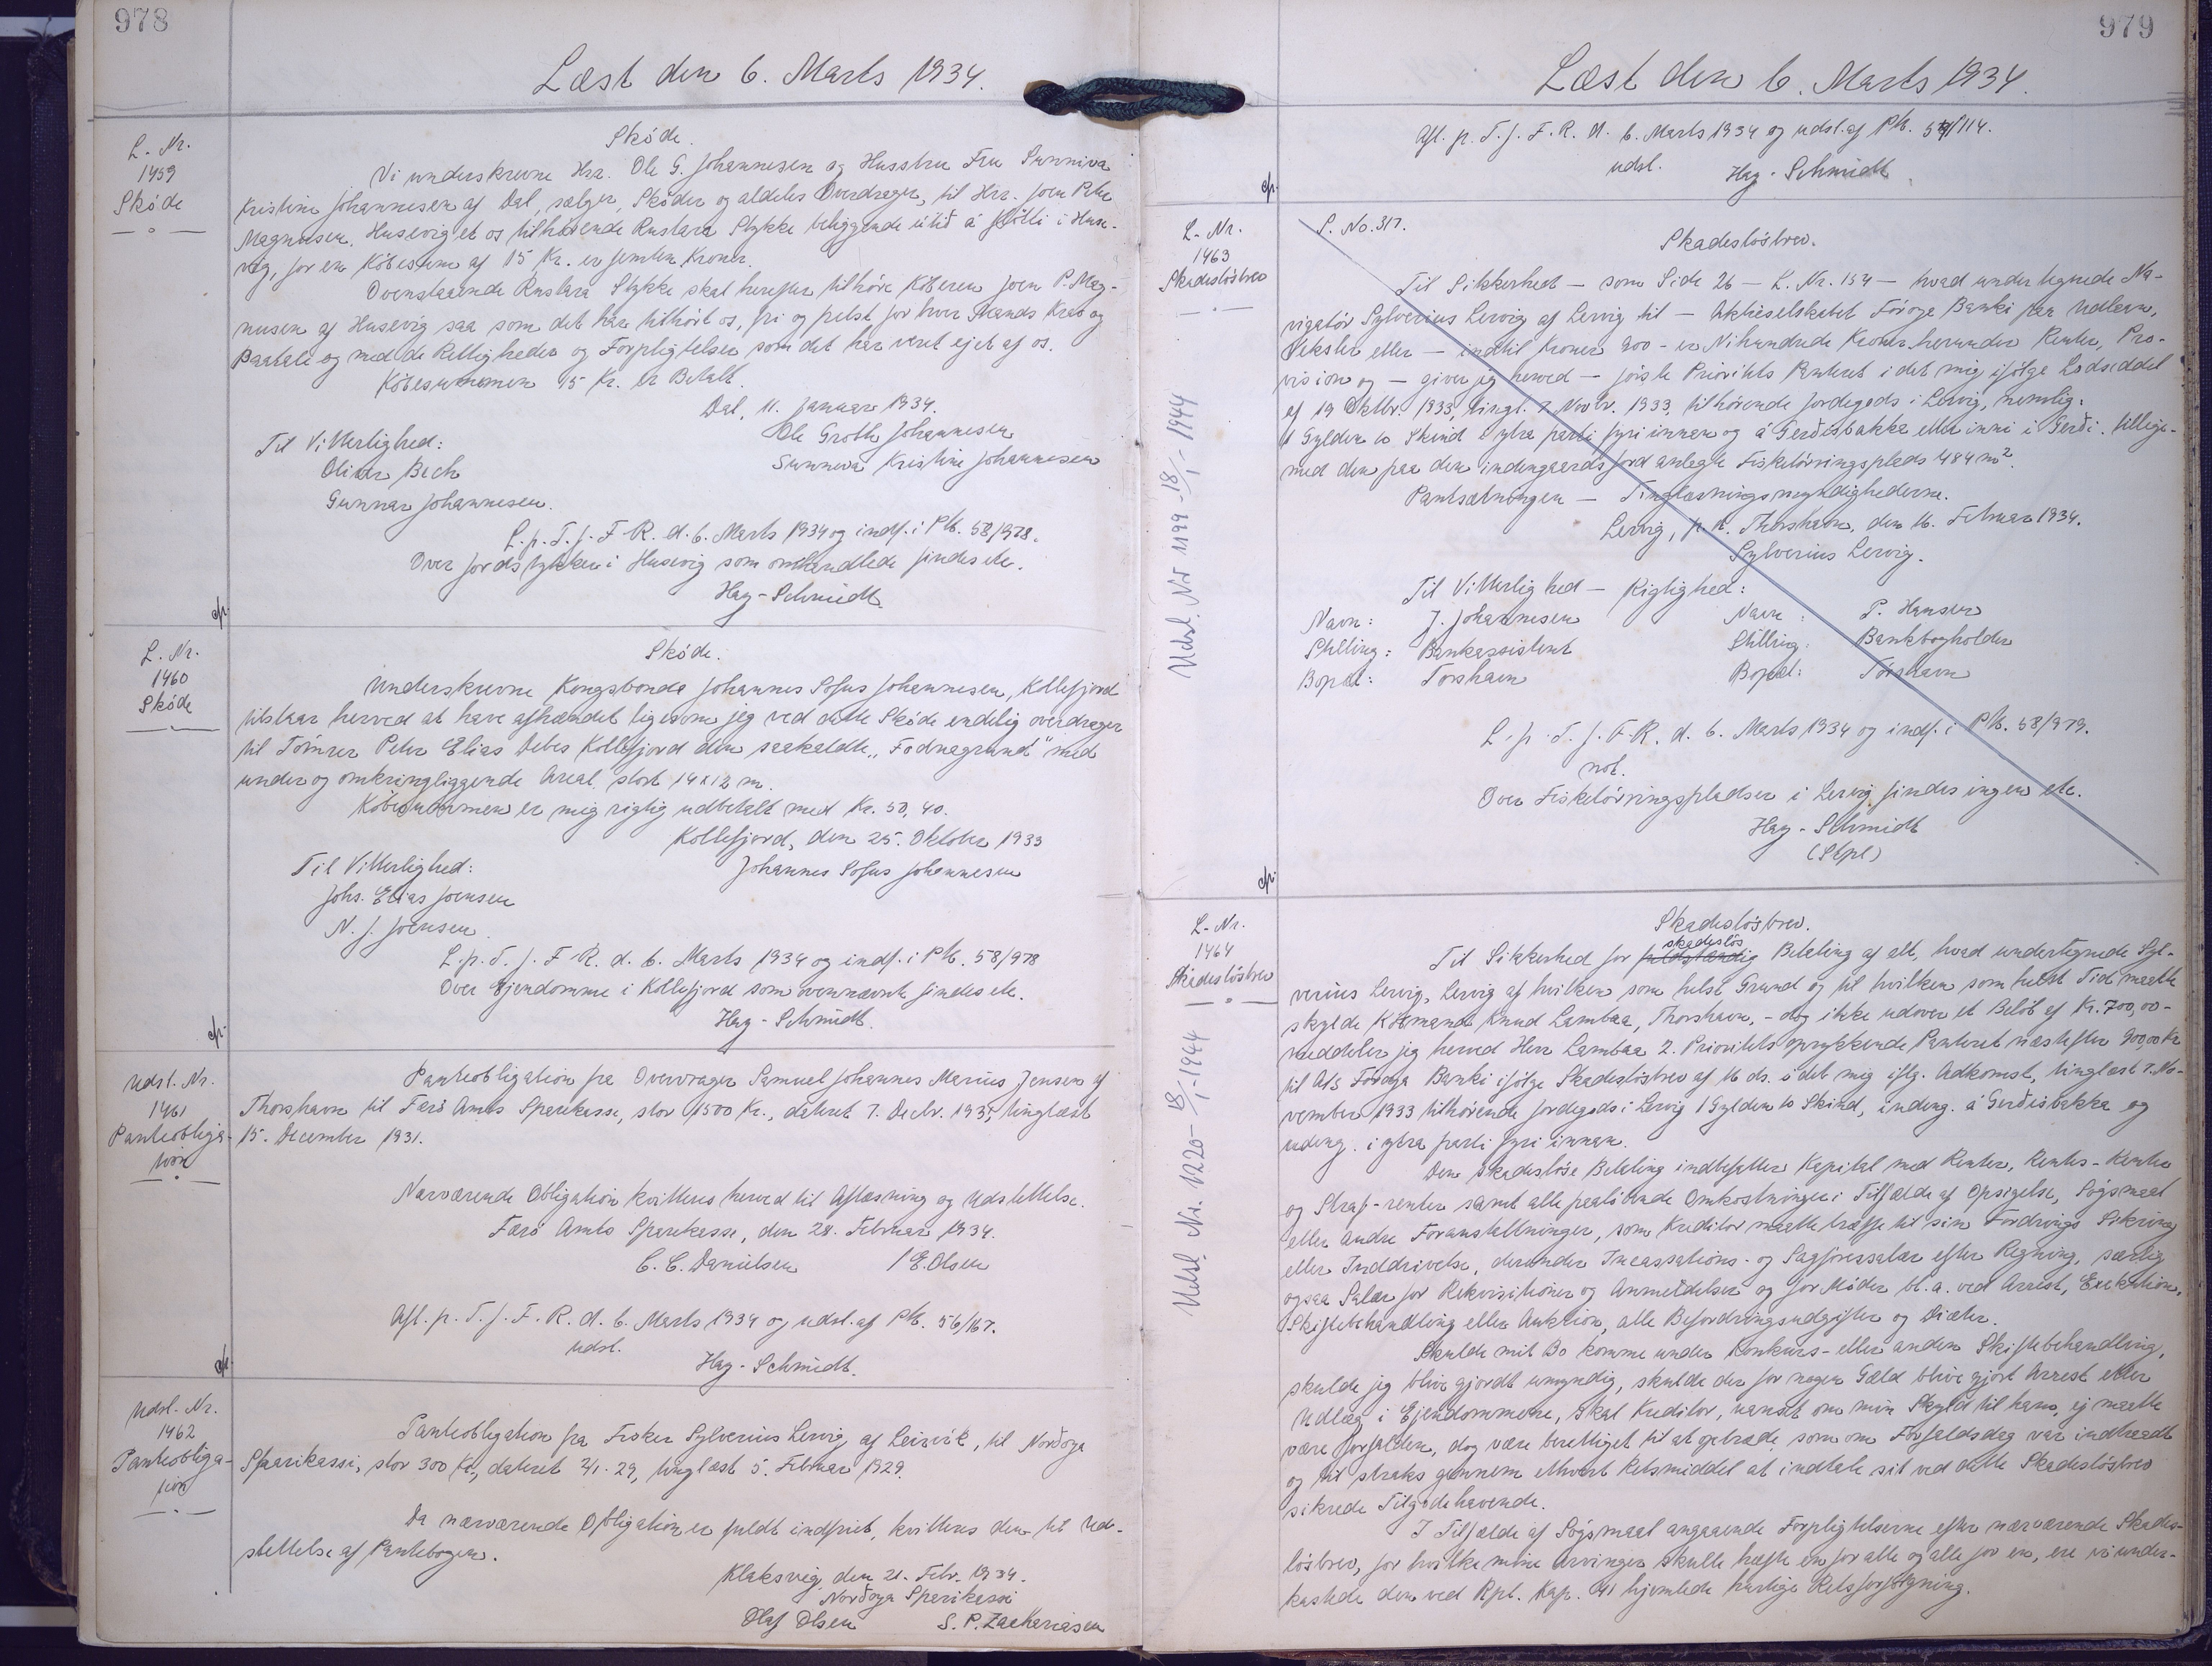 978
Læst den 6. Marts 1934.
L. Nr.
1459
Skøde
Skøde.
Vi underskrevne Hrr. Ole G. Johannesen og Husstru Fru Sunniva
Kristine Johannesen af Dal, sælger, Skøder og aldeles Overdrager, til Hrr. Joen Peter
Magnusen, Husevig et os tilhørende Ruslara Stykke beliggende útið á Fløtti i Huse-
vig, for en Købesum af 15 Kr. er femten Kroner.
Ovenstaaende Ruslara Stykke skal herefter tilhøre Køberen Joen P. Mag-
nusen af Husevig saa som det har tilhørt os, fri og frelst for hver Mands Krav og
Paatale og med de Rettigheder og Forpligtelser som det har været ejet af os.
Købesummen 15 Kr. er Betalt.
Dal, 11. Januar 1934.
Ole Groth Johannesen
Til Vitterlighed:
Sunneva Kristine Johannesen
Oliver Bech
Gunnar Johannesen.
L. p. T. f. F. R. d. 6. Marts 1934 og indf. i Pb. 58/978.
Over Jordstykker i Husevig som omhandlede findes etc.
Hag-Schmidt.
L. Nr.
1460
Skøde
Skøde.
Underskrevne Kongsbonde Johannes Sofus Johannesen, Kollefjord
tilstaar herved at have afhændet ligesom jeg ved dette Skøde endelig overdrager
til Tømrer Peter Elias Debes Kollefjord den saakaldte "Fodnagrund" med
under og omkringliggende Areal stort 14x12 m.
Købesummen er mig rigtig udbetalt med Kr. 50,40.
Kollefjord, den 25. Oktober 1933
Til Vitterlighed:
Johannes Sofus Johannesen
Johs. Elias Joensen
N. J. Joensen.
L. p. T. f. F. R. d. 6. Marts 1934 og indf. i Pb. 58/978
Over Ejendomme i Kollefjord som ovennævnte findes etc.
Hag-Schmidt.
Udsl. Nr.
1461
Panteobliga-
tion
Panteobligation fra Overvrager Samuel Johannes Marius Jensen af
Thorshavn til Færø Amts Sparekasse, stor 1500 Kr., dateret 7. Decbr. 1931, tinglæst
15. December 1931.
Nærværende Obligation kvitteres herved til Aflæsning og Udslettelse.
Færø Amts Sparekasse, den 28. Februar 1934.
C. C. Danielsen / E. Olsen
Afl. p. T. f. F. R. d. 6. Marts 1934 og udsl. af Pb. 56/167.
udsl.
Hag-Schmidt.
Udsl. Nr.
1462
Panteobliga-
tion
Panteobligation fra Fisker Sylverius Lervig af Leirvik, til Norðoya
Sparikassi, stor 300 Kr., dateret 2/1. 29, tinglæst 5. Februar 1929.
Da nærværende Obligation er fuldt indfriet, kvitteres den til Ud-
slettelse af Pantebogen.
Klaksvig, den 21. Febr. 1934.
Norðoya Sparikassi
Olaf Olsen S. P. Zachariasen
979
Læst den 6. Marts 1934.
Afl. p. T. f. F. R. d. 6. Marts 1934 og udsl. af Pb. 54/114.
udsl.
Hag-Schmidt.
L. Nr.
1463
Skadesløsbrev
Udsl. Nr 1199 - 18/1 - 1944
S. No. 317.
Skadesløsbrev.
Til Sikkerhed – som Side 26 – L. Nr. 154 – hvad undertegnede Na-
vigatør Sylverius Lervig af Lervig til – Aktieselskabet Føroya Banki paa Udlaan,
Veksler eller – indtil Kroner 900 – er Nihundrede Kroner herunder Renter, Pro-
vision og – giver jeg herved – første Prioritets Panteret i det mig ifølge Lodseddel
af 19 Oktbr. 1933, tingl. 7 Novbr. 1933, tilhørende Jordegods i Lervig, nemlig:
1 Gylden 10 Skind i ytra parti fyri innan og á Gerðisbakka eller inni i Gerði, tillige-
med den paa den indengaards Jord anlagte Fisketørringsplads 484 m².
Pantsætningen – Tinglæsningsmyndighederne.
Lervig, p. t. Thorshavn, den 16. Februar 1934.
Sylverius Lervig.
Til Vitterlighed – Rigtighed:
Navn: J. Johannesen Navn: P. Hansen
Stilling: Bankassistent Stilling: Bankbogholder
Bopæl: Torshavn Bopæl: Torshavn
L. p. T. f. F. R. d. 6. Marts 1934 og indf. i Pb. 58/979.
not.
Over Fisketørringspladser i Lervig findes ingen etc.
Hag-Schmidt
(Stpl)
L. Nr.
1464
Skadesløsbrev
Udsl. Nr. 1220 - 18/1 - 1944
Skadesløsbrev.
skadesløs
Til Sikkerhed for fuldstændig Betaling af alt, hvad undertegnede Syl-
verius Lervig, Lervig af hvilken som helst Grund og til hvilken som helst Tid maatte
skylde Købmand Knud Lambaa, Thorshavn, – dog ikke udover et Beløb af Kr. 700,00 –
meddeler jeg herved Herr Lambaa 2. Prioritets oprykkende Panteret næstefter 900,00 Kr
til A/S Føroya Banki ifølge Skadesløsbrev af 16 ds. i det mig iflg. Adkomst, tinglæst 7. No-
vember 1933 tilhørende Jordegods i Lervig 1 Gylden 10 Skind, indeng. á Gerðisbakka og
udeng. i ytra parti fyri innan.
Den skadesløse Betaling indbefatter Kapital med Renter, Rentes-Renter
og Straf-renter samt alle paaløbende Omkostninger i Tilfælde af Opsigelse, Søgsmaal
eller andre Foranstaltninger, som Kreditor maatte træffe til sin Fordrings Sikring
eller Inddrivelse, derunder Incassations- og Sagførersalær efter Regning, særlig
ogsaa Salær for Rekvisitioner og Anmeldelser og for Møder bl. a. ved Arrest, Exekution,
Skiftebehandling eller Auktion, alle Befordringsudgifter og Diæter.
Skulde mit Bo komme under Konkurs- eller anden Skiftebehandling,
skulde jeg blive gjordt umyndig, skulde der for nogen Gæld blive gjort Arrest eller
Udlæg i Ejendommene, skal Kreditor, uanset om min Skyld til ham, ej maatte
være forfalden, dog være berettiget til at optræde som om Forfaldsdag var indtraadt
og til straks gennem ethvert Retsmiddel at indtale sit ved dette Skadesløsbrev
sikrede Tilgodehavende.
I Tilfælde af Søgsmaal angaaende Forpligtelserne efter nærværende Skades-
løsbrev, for hvilke mine Arvinger skulle hæfte en for alle og alle for en, ere vi under-
kastede den ved Rpl. Kap. 41 hjemlede hurtige Retsforfølgning.